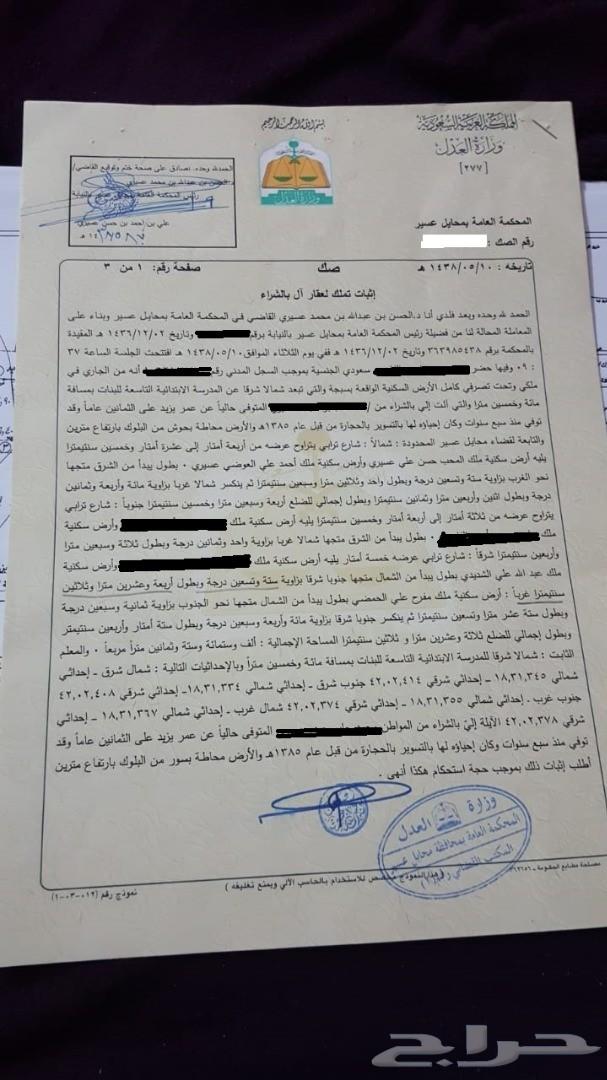 بسم الله الرحمن الرحيم
المملكة العربية السعودية
وزارة العدل
[٢٧٧]
وزارة العدل
الحمدلله وحده، نصادق على صحة ختم وتوقيع القاضي/
الحسن بن عبدالله بن محمد عسيري
رئيس المحكمة العامة بمحايل عسير بالنيابة
علي بن أحمد بن حسن عسيري
المحكمة العامة بمحايل عسير
رقم الصك :
تاريخه : ١٤٣٨/٠٥/١٠ هـ
صك
صفحة رقم: ١ من ٣
إثبات تملك لعقار آل بالشراء
الحمد لله وحده وبعد فلدي أنا د.الحسن بن عبدالله بن محمد عسيري القاضي في المحكمة العامة بمحايل عسير وبناء على
المعاملة المحالة لنا من فضيلة رئيس المحكمة العامة بمحايل عسير بالنيابة برقم وتاريخ ١٤٣٦/١٢/٠٢ هـ المقيدة
بالمحكمة برقم ٣٦٣٩٨٥٤٣٨ وتاريخ ١٤٣٦/١٢/٠٢ هـ ففي يوم الثلاثاء الموافق ١٤٣٨/٠٥/١٠ هـ افتتحت الجلسة الساعة ٣٧
: ٠٩ وفيها حضر سعودي الجنسية بموجب السجل المدني رقم أنه من الجاري في
ملكي وتحت تصرفي كامل الأرض السكنية الواقعة بسجة والتي تبعد شمالا شرقا عن المدرسة الابتدائية التاسعة للبنات بمسافة
مائة وخمسين مترا والتي آلت إلي بالشراء من / المتوفى حاليا عن عمر يزيد على الثمانين عاما وقد
توفي منذ سبع سنوات وكان إحياؤه لها بالتسوير بالحجارة من قبل عام ١٣٨٥هـ والأرض محاطة بحوش من البلوك بارتفاع مترين
والتابعة لقضاء محايل عسير المحدودة : شمالاً: شارع ترابي يتراوح عرضه من أربعة أمتار إلى عشرة أمتار وخمسين سنتيمترا
يليه أرض سكنية ملك المحب حسن علي عسيري وأرض سكنية ملك أحمد علي العوضي عسيري ٠ بطول يبدأ من الشرق متجها
نحو الغرب بزاوية ستة وتسعين درجة وبطول واحد وثلاثين مترا وسبعين سنتيمترا ثم ينكسر شمالا غربا بزاوية مائة وأربعة وثمانين
درجة وبطول اثنين وأربعين مترا وثمانين سنتيمترا وبطول إجمالي للضلع أربعة وسبعين مترا وخمسين سنتيمترا جنوباً : شارع ترابي
يتراوح عرضه من ثلاثة أمتار إلى أربعة أمتار وخمسين سنتيمترا يليه أرض سكنية ملك وأرض سكنية
ملك ٠ بطول يبدأ من الشرق متجها شمالا غربا بزاوية واحد وثمانين درجة وبطول ثلاثة وسبعين مترا
وأربعين سنتيمترا شرقاً : شارع ترابي عرضه خمسة أمتار يليه أرض سكنية ملك وأرض سكنية
ملك عبد الله علي الشديدي بطول يبدأ من الشمال متجها جنوبا شرقا بزاوية ستة وتسعين درجة وبطول أربعة وعشرين مترا وثلاثين
سنتيمترا غرباً : أرض سكنية ملك مفرح علي الحمضي بطول يبدأ من الشمال متجها نحو الجنوب بزاوية ثمانية وسبعين درجة
وبطول ستة عشر مترا وتسعين سنتيمترا ثم ينكسر جنوبا شرقا بزاوية مائة وأربعة درجة وبطول ستة أمتار وأربعين سنتيمتر
وبطول إجمالي للضلع ثلاثة وعشرين مترا و ثلاثين سنتيمترا المساحة الإجمالية : ألف وستمائة وستة وثمانين متراً مربعاً ٠ والمعلم
الثابت : شمالا شرقا للمدرسة الابتدائية التاسعة للبنات بمسافة مائة وخمسين متراً وبالإحداثيات التالية : شمال شرق - إحداثي
شمالي ١٨,٣١,٣٤٥ – إحداثي شرقي ٤٢,٠٢,٤١٤ جنوب شرق - إحداثي شمالي ١٨,٣١,٣٣٤- إحداثي شرقي ٤٢,٠٢,٤٠٨
جنوب غرب - إحداثي شمالي ١٨,٣١,٣٥٥ – إحداثي شرقي ٤٢,٠٢,٣٧٤ شمال غرب - إحداثي شمالي ١٨,٣١,٣٦٧ – إحداثي
شرقي ٤٢,٠٢,٣٧٨ الآيلة إلي بالشراء من المواطن المتوفى حاليا عن عمر يزيد على الثمانين عاماً وقد
توفي منذ سبع سنوات وكان إحياؤه لها بالتسوير بالحجارة من قبل عام ١٣٨٥هـ والأرض محاطة بسور من البلوك بارتفاع مترين
أطلب إثبات ذلك بموجب حجة استحكام هكذا أنهى ٠
وزارة العدل
المحكمة العامة بمحافظة محايل عسير
المكتب القضائي
مصلحة مطابع الحكومة -
( هذا النموذج مخصص للاستخدام بالحاسب الآلي ويمنع تغليفه )
نموذج رقم (١٩-٠٣-٠١)
حراج